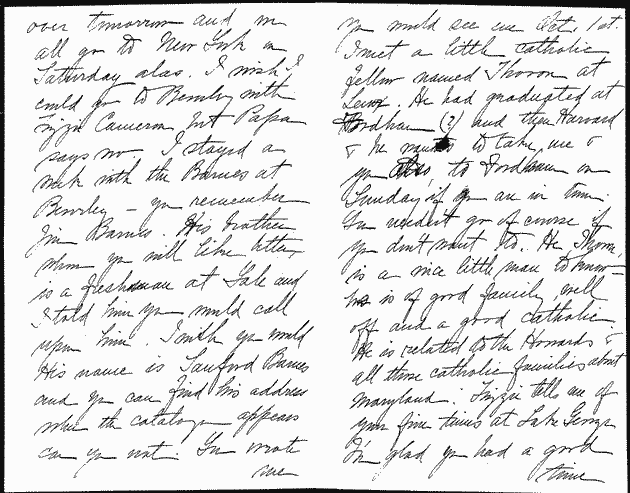 over tomorrow and we
all go to New York on
Saturday alas. I wish I
could go to Beverley with
Lizzie Cameron but Papa
says no. I stayed a
week with the Barnes at
Beverley - you remember
Jim Barnes. His brother
whom you will like better
is a freshman at Yale and
I told him you would call
upon him. I wish you would
His name is Sanford Barnes
and you can find his address
when the catalogue appears
can you not. You wrote
me
you would see me Oct. 1st.
I met a little catholic
fellow named Thoron at
Lenox. He had graduated at
Fordham (?) and then Harvard
& he wants to take me &
you also, to Fordham on
Sunday if you are in time.
You needn't go of course if
you don't want to. He, Thoron,
is a nice little man to know -
he is of good family, well
off and a good catholic.
He is related to the Howards &
all those catholic families about
Maryland. Lizzie tells me of
your fine times at Lake George
I'm glad you had a good
time